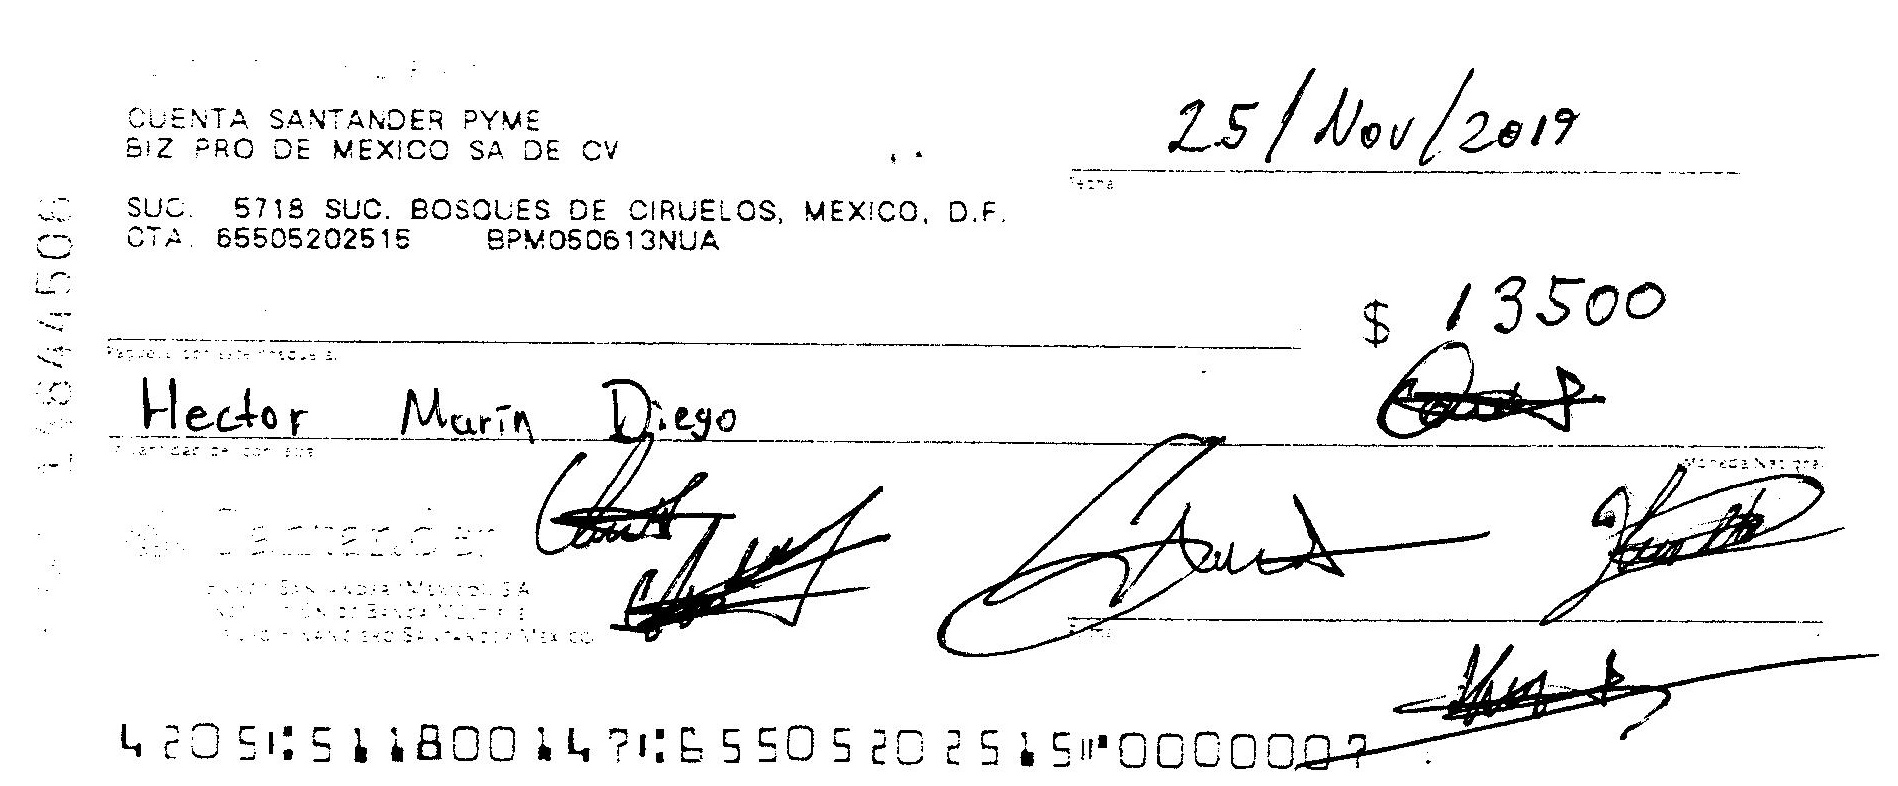 CUENTA SANTANDER PYME
BIZ PRO DE MEXICO SA DE CV
25/Nov/2019
Fecha
SUC. 5718 SUC. BOSQUES DE CIRUELOS, MEXICO, D.F.
CTA. 65505202515 BPM050613NUA
$ 13500
Páguese por este cheque a:
Hector Marín Diego
Moneda Nacional
Santander
BANCO SANTANDER (MÉXICO), S.A.
INSTITUCIÓN DE BANCA MÚLTIPLE
GRUPO FINANCIERO SANTANDER MÉXICO
Firma
4205 51180014 7 65505202515 0000007